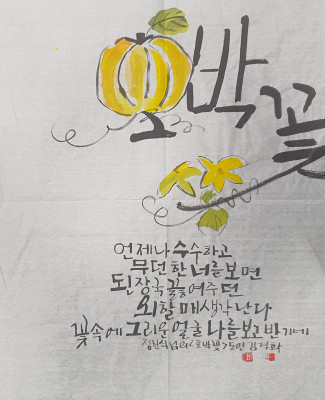 호박꽃
언제나 수수하고
무던한 너를 보면
된장국 끓여주던
외할 매생각난다
꽃속에 그리운 얼굴 나를보고 반기네
님의 호박꽃